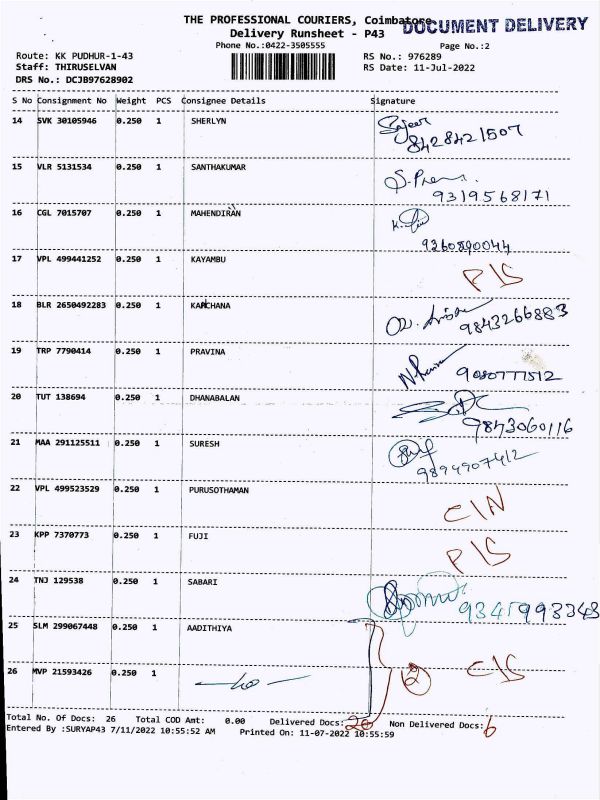 THE PROFESSIONAL COURIERS, Coimbatore
DOCUMENT DELIVERY
Delivery Runsheet - P43
Phone No.:0422-3505555
Page No.:2
Route: KK PUDHUR-1-43
RS No.: 976289
Staff: THIRUSELVAN
RS Date: 11-Jul-2022
DRS No.: DCJB97628902
S No Consignment No Weight PCS Consignee Details Signature
14 SVK 30105946 0.250 1 SHERLYN
8428421507
15 VLR 5131534 0.250 1 SANTHAKUMAR
9319568171
16 CGL 7015707 0.250 1 MAHENDIRAN
9360890044
17 VPL 499441252 0.250 1 KAYAMBU
P/S
18 BLR 2650492283 0.250 1 KANCHANA
9843266883
19 TRP 7790414 0.250 1 PRAVINA
9080777512
20 TUT 138694 0.250 1 DHANABALAN
9843060116
21 MAA 291125511 0.250 1 SURESH
9894907412
22 VPL 499523529 0.250 1 PURUSOTHAMAN
C/N
23 KPP 7370773 0.250 1 FUJI
P/S
24 TNJ 129538 0.250 1 SABARI
9345993348
25 SLM 299067448 0.250 1 AADITHIYA
26 MVP 21593426 0.250 1
2 C/S
Total No. Of Docs: 26 Total COD Amt: 0.00 Delivered Docs: 20 Non Delivered Docs: 6
Entered By :SURYAP43 7/11/2022 10:55:52 AM Printed On: 11-07-2022 10:55:59